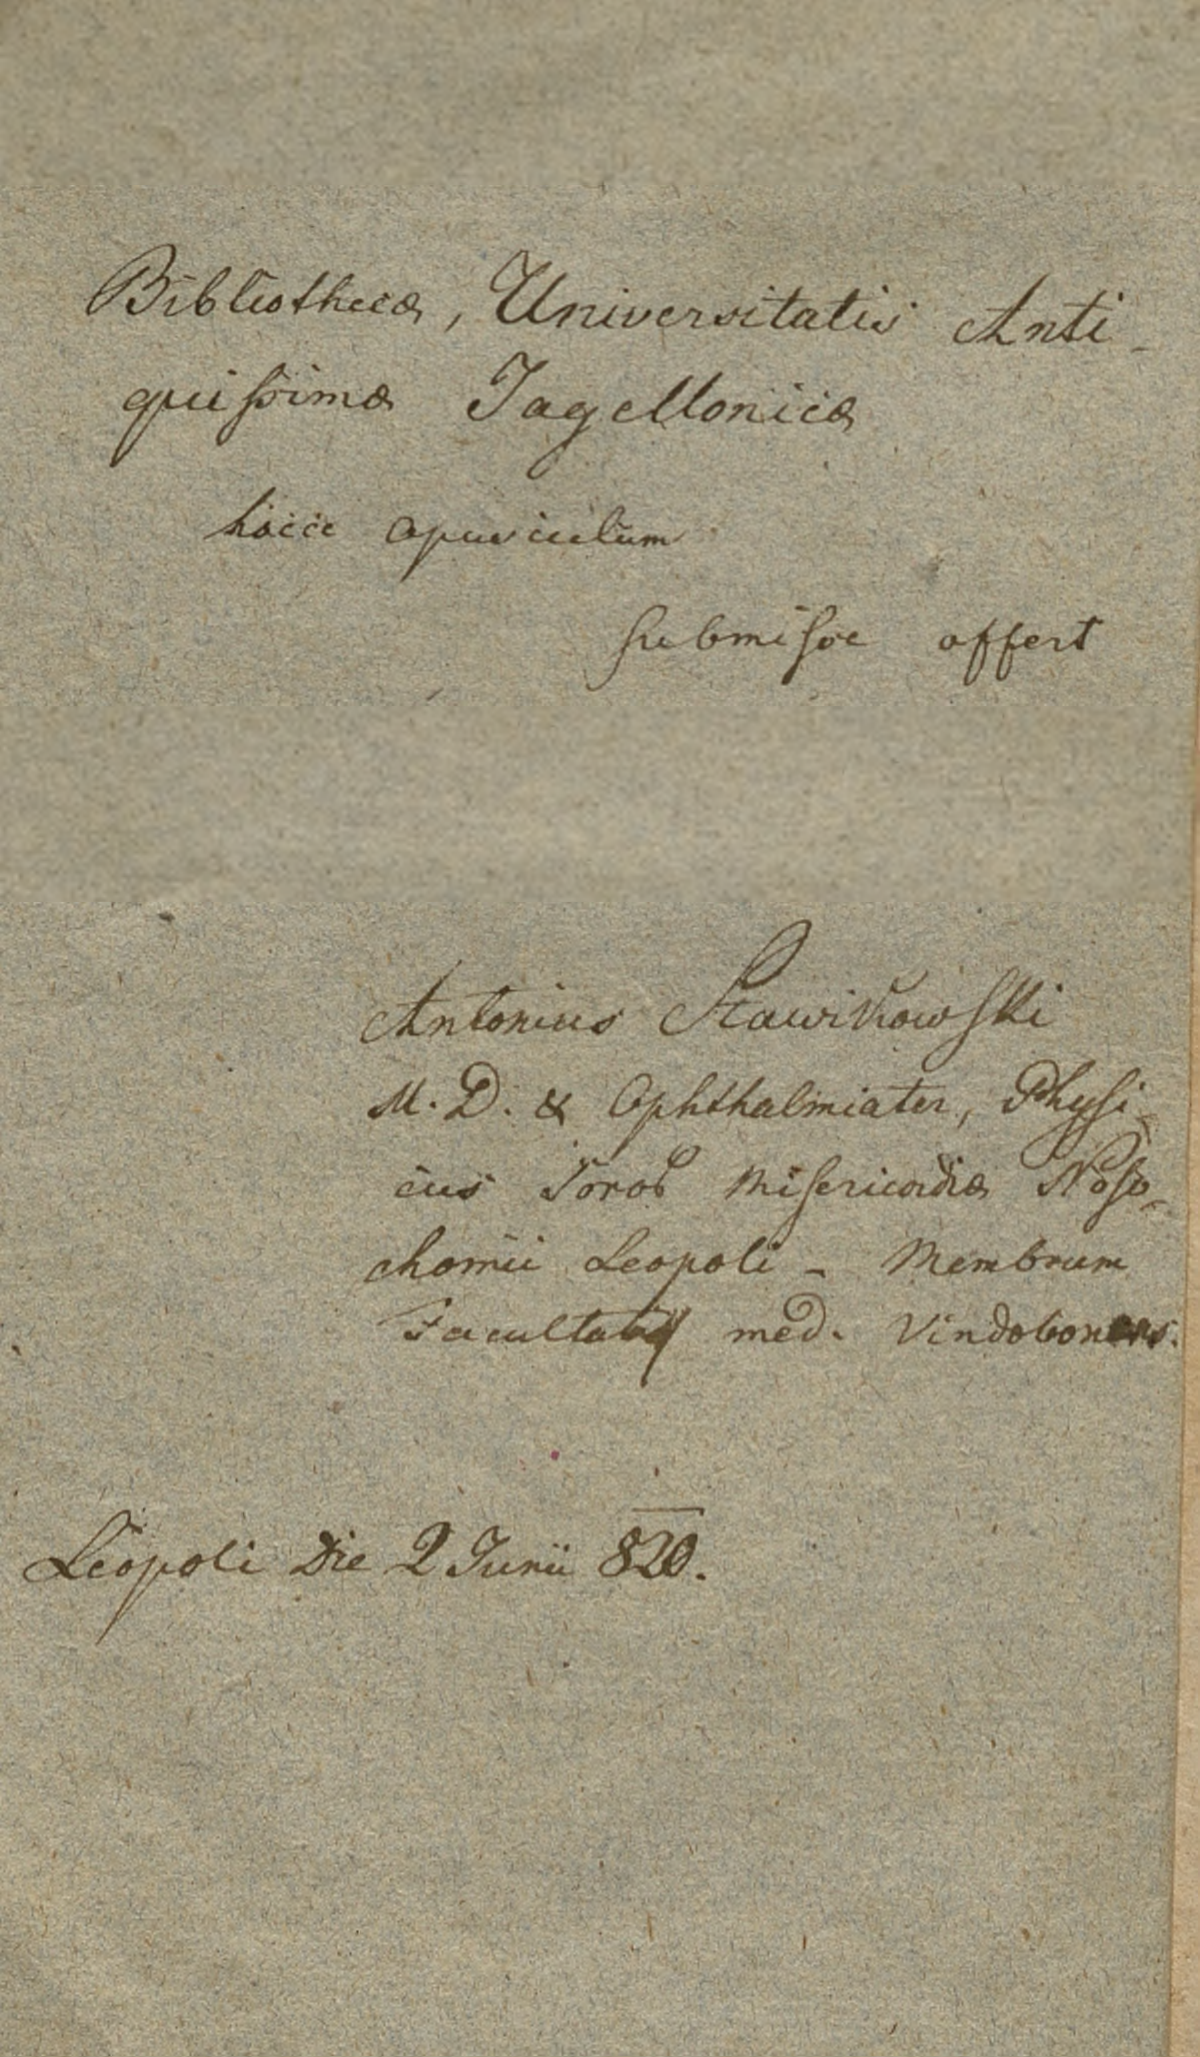 Bibliothecæ, Universitatis Anti-
quissimæ Jagellonicæ
hocce opusculum
submisse offert
Antonius Sławikowski
M. D. & Ophthalmiater, Physi-
cus Soror Misericordiæ Noso-
chomii Leopoli - Membrum
Facultatis med. Vindobonens.
Leopoli Die 2 Junii 820.